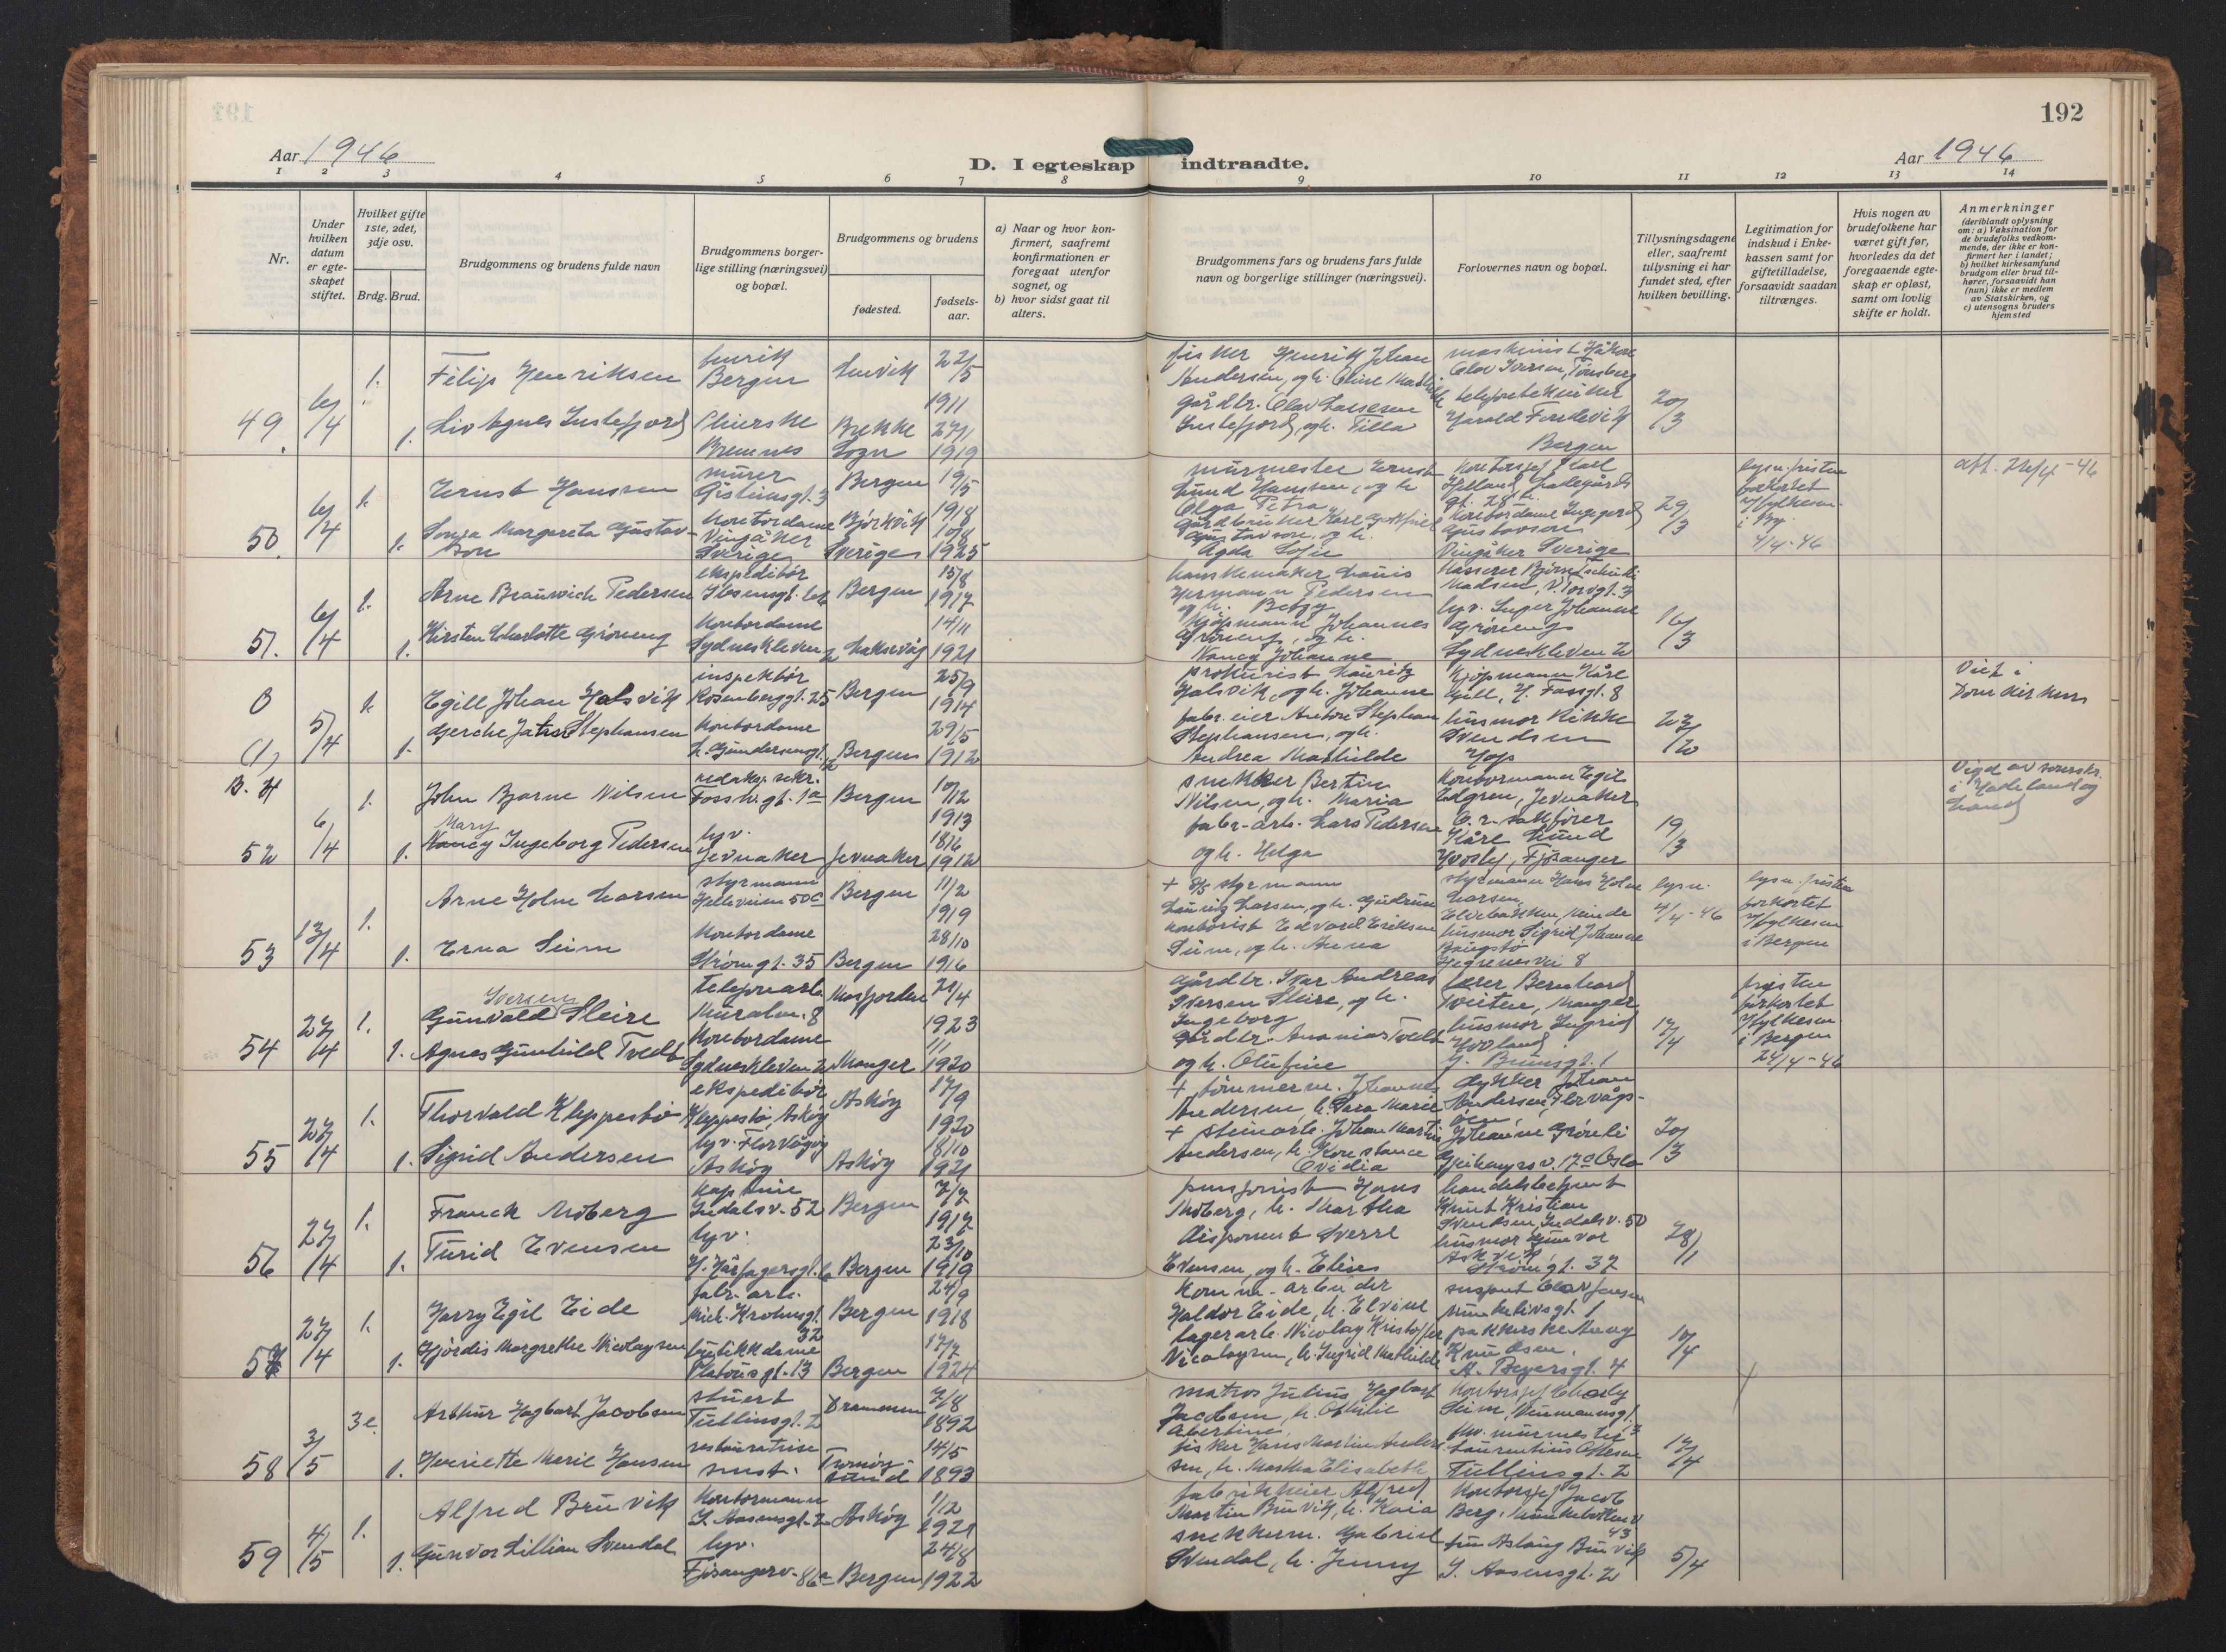 192
Aar 1946
D. I egteskap indtraadte.
Aar 1946
1 2 3 4 5 6 7 8 9 10 11 12 13 14
Nr.
Under hvilken datum er egteskapet stiftet.
Hvilket gifte 1ste, 2det, 3dje osv.
Brdg. Brud.
Brudgommens og brudens fulde navn
Brudgommens borgerlige stilling (næringsvei) og bopæl.
Brudgommens og brudens
fødested.
fødselsaar.
a) Naar og hvor konfirmert, saafremt konfirmationen er foregaat utenfor sognet, og
b) hvor sidst gaat til alters.
Brudgommens fars og brudens fars fulde navn og borgerlige stillinger (næringsvei).
Forlovernes navn og bopæl.
Tillysningsdagene eller, saafremt tillysning ei har fundet sted, efter hvilken bevilling.
Legitimation for indskud i Enkekassen samt for giftetilladelse, forsaavidt saadan tiltrænges.
Hvis nogen av brudefolkene har været gift før, hvorledes da det foregaaende egteskap er opløst, samt om lovlig skifte er holdt.
Anmerkninger
(deriblandt oplysning om: a) Vaksination for de brudefolks vedkommende, der ikke er konfirmert her i landet; b) hvilket kirkesamfund brudgom eller brud tilhører, forsaavidt han (hun) ikke er medlem av Statskirken, og c) utensogns bruders hjemsted
49. 6/4 1. Filip Henriksen Bergen 22/5 1911
fisker Henrik Johan Andersen, og h. Oline
maskinist Håkon Olav Iversen, Tønsberg
1. Liv Agnes Instefjord Bremnes Brekke Sogn 27/1 1919
gårdbr. Olav Lassesen Instefjord, og h. Tilla
Harald Fordevik Bergen
20/3
50. 6/4 1. Ernst Hanssen murer Bergen 19/5 1918
murmester Ernst Lund Hansen, og h. Olga Petra
1. Sonja Margareta Gustavson kontordame Vingåker Sverige Björkvik Sverige 10/8 1925
gårdbruker Karl Gustavson, og h. Agda Sofie
kontordame Ingegerd Gustavson Vingåker Sverige
29/3
lysn. fristen forkortet
4/4-46
att. 26/4-46
51. 6/4 1. Arne Braunwich Pedersen ekspeditør Ibsensgt. Bergen 15/8 1917
hanskemaker Louis Hermann Pedersen og h. Betzy
kasserer Bjørn Madsen, V. Torvgt. 3
1. Kirsten Charlotte Grøneng kontordame Sydneskleven 2 Laksevåg 14/11 1921
kjøpmann Johannes Grøneng, og h. Nancy Johanne
hv. Inger Johanne Grøneng Sydneskleven 2
16/3
0 (1) 5/4 1. Egill Johan Halsvik inspektør Rosenberggt. 25 Bergen 25/9 1914
prokurist Lauritz Halsvik, og h. Johanne
kjøpmann Kåre Gill, H. Fossgt. 8
1. Gerche Stephansen kontordame Bergen 29/5 1912
fabr. eier Anton Stephan Stephansen, og h. Andrea Mathilde
husmor Rikke Svendsen Hop
23/2
Viet i Domkirken
B. 4
52 6/4 1. John Bjarne Nilsen redaksj. sekr. Fossw.gt. 1a Bergen 10/12 1913
snekker Bertin Nilsen, og h. Maria
kontormann Egil Edgren, Jevnaker
1. Mary Nancy Ingeborg Pedersen hv. Jevnaker Jevnaker 18/6 1912
fabr-arb. Lars Pedersen og h. Helga
o. r. sakfører Kåre Lund Fjøsanger
19/3
Vigd av sorenskr. i Hadeland og Land
53 13/4 1. Arne Holm Larsen styrmann Helleveien 50c Bergen 11/2 1919
+ styrmann Larsen, og h. Gudrun
styrmann Hans Holm Larsen
1. Erna Seim kontordame Strømgt. 35 Bergen 28/10 1916
kontorist Edvard Eriksen Seim, og h. Anna
husmor Sigrid Johanne
lysn. 4/4-46
lysn. fristen forkortet Fylkesm. i Bergen
54 27/4 1. Gunvald Iversen Sleire telefonarb. Muralm. 8 Masfjorden 21/4 1923
gårdbr. Ivar Andreas Iversen Sleire, og h. Ingeborg
lærer Bernhard Tveiten, Manger
1. Agnes Gunhild Tvedt kontordame Sydneskleven 2 Manger 1/1 1920
gårdbr. Ananias Tvedt og h. Olufine
husmor Ingrid Hovland J. Brunsgt. 1
17/4
fristen forkortet Fylkesm. i Bergen 24/4-46
55 27/4 1. Thorvald Kleppestø ekspeditør Kleppestø, Askøy Askøy 17/9 1920
+ tømmerm. Johannes Andersen, h. Sara Marie
dykker Johan Andersen, Florvågøen
1. Sigrid Andersen hv. Florvåg Askøy Askøy 18/10 1921
+ stenarb. Johan Martin Andersen, h. Konstance Ovidia
Johanne Grønli 17c Oslo
20/3
56 27/4 1. Franck Moberg kaptein Indalsv. 52 Bergen 7/7 1917
pensjonist Hans Moberg, h. Martha
handelsbetjent Knut Kristian Svendsen, Indalsv. 50
1. Turid Evensen hv. H. Hårfagersgt. 6 Bergen 23/10 1919
disponent Sverre Evensen, og h. Elise
husmor Gunvor Askvik Strømgt. 37
28/1
57 27/4 1. Harry Egil Eide fabr. arb. Mich. Krohnsgt. 32 Bergen 24/9 1918
komm. arbeider Haldor Eide, h. Elvine
Olav Jensen 1
1. Hjørdis Margrethe Nicolaysen butikkdame Platousgt. 13 Bergen 17/7 1924
lagerarb. Nicolay Kristoffer Nicolaysen, h. Ingrid Mathilde
pakkerske Aaug Knudsen. A. Beyersgt. 4
10/4
58 3/5 3e. Arthur Hagbart Jacobsen stuert Tullinsgt. 2 Drammen 7/8 1892
matros Julius Hagbart Jacobsen, h. Othilie Abertine
kontorsjef Charly Seim, Neumannsgt. 3
1. Henriette Merie Hansen restauratrise smst. Tromøysund 14/5 1893
fisker Hans Martin h. Martha Elisabeth
murmester Laurentius Ottesen Tullinsgt. 2
17/4
59 4/5 1. Alfred Bruvik kontormann I. Aasensgt. 2 Askøy 1/12 1921
fabrikkeier Alfred Martin Bruvik, h. Kaia
kontorsjef Jacob Berg, 43
1. Gunvor Lillian Svendal hv. Fjøsangerv. 86a Bergen 24/8 1922
snekkerm. Gabriel Svendal, h. Jenny
fru Aslaug Bruvik I. Aasensgt. 2
5/4